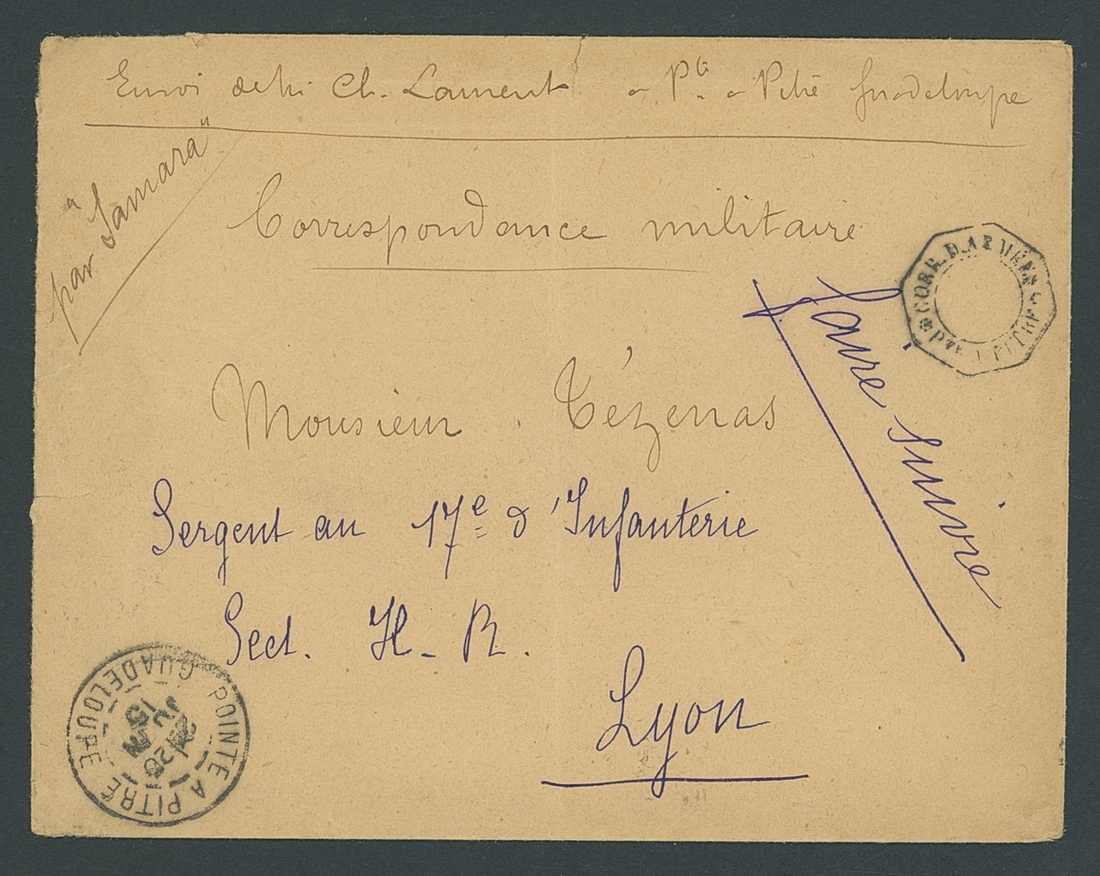 Envoi de Mr Ch. Laurent à Pte à Pitre Guadeloupe
par "Samara"
Correspondance militaire
CORR. D. ARMÉES
PTE A PITRE
Faire suivre
Monsieur Tézenas
Sergent au 17e d'Infanterie
Sect. H. R.
Lyon
POINTE A PITRE
GUADELOUPE
15